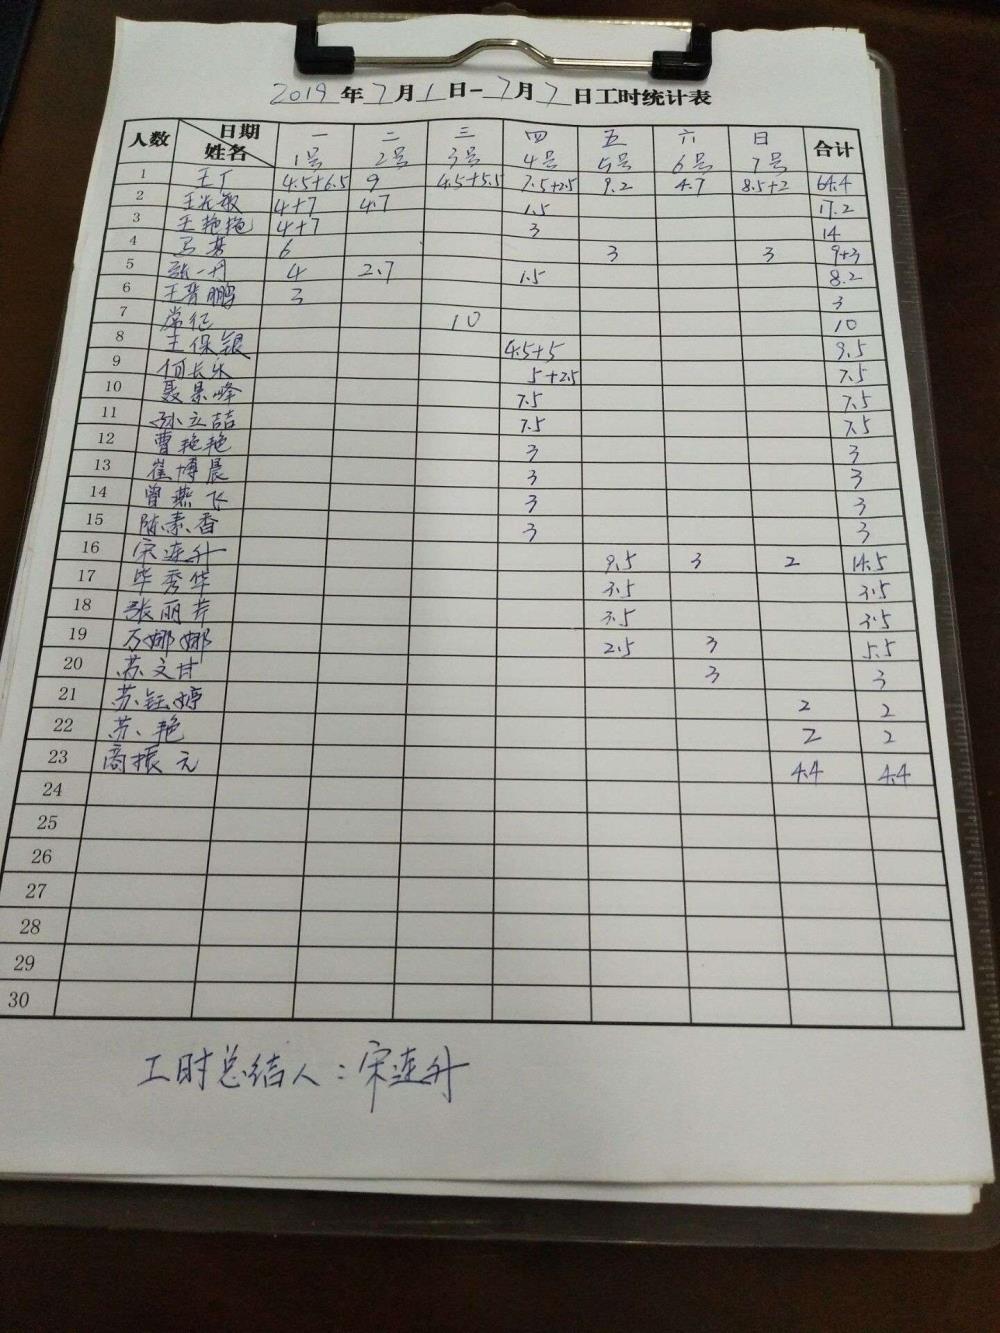 2019年7月1日-7月7日工时统计表
人数 日期 姓名 一 二 三 四 五 六 日 合计
1号 2号 3号 4号 5号 6号 7号
1 王丁 4.5+6.5 9 4.5+5.5 7.5+2.5 9.2 4.7 8.5+2 64.4
2 4+7 4.7 1.5 17.2
3 王艳艳 4+7 3 14
4 6 3 3 9+3
5 张一丹 4 2.7 1.5 8.2
6 王晋鹏 3 3
7 常征 10 10
8 王保银 4.5+5 9.5
9 何长久 5+2.5 7.5
10 聂景峰 7.5 7.5
11 孙立喆 7.5 7.5
12 曹艳艳 3 3
13 崔博晨 3 3
14 曾燕飞 3 3
15 陈素香 3 3
16 宋连升 9.5 3 2 14.5
17 毕秀华 3.5 3.5
18 张丽芹 3.5 3.5
19 万娜娜 2.5 3 5.5
20 苏文甘 3 3
21 苏钰婷 2 2
22 苏艳 2 2
23 商振元 4.4 4.4
24
25
26
27
28
29
30
工时总结人：宋连升